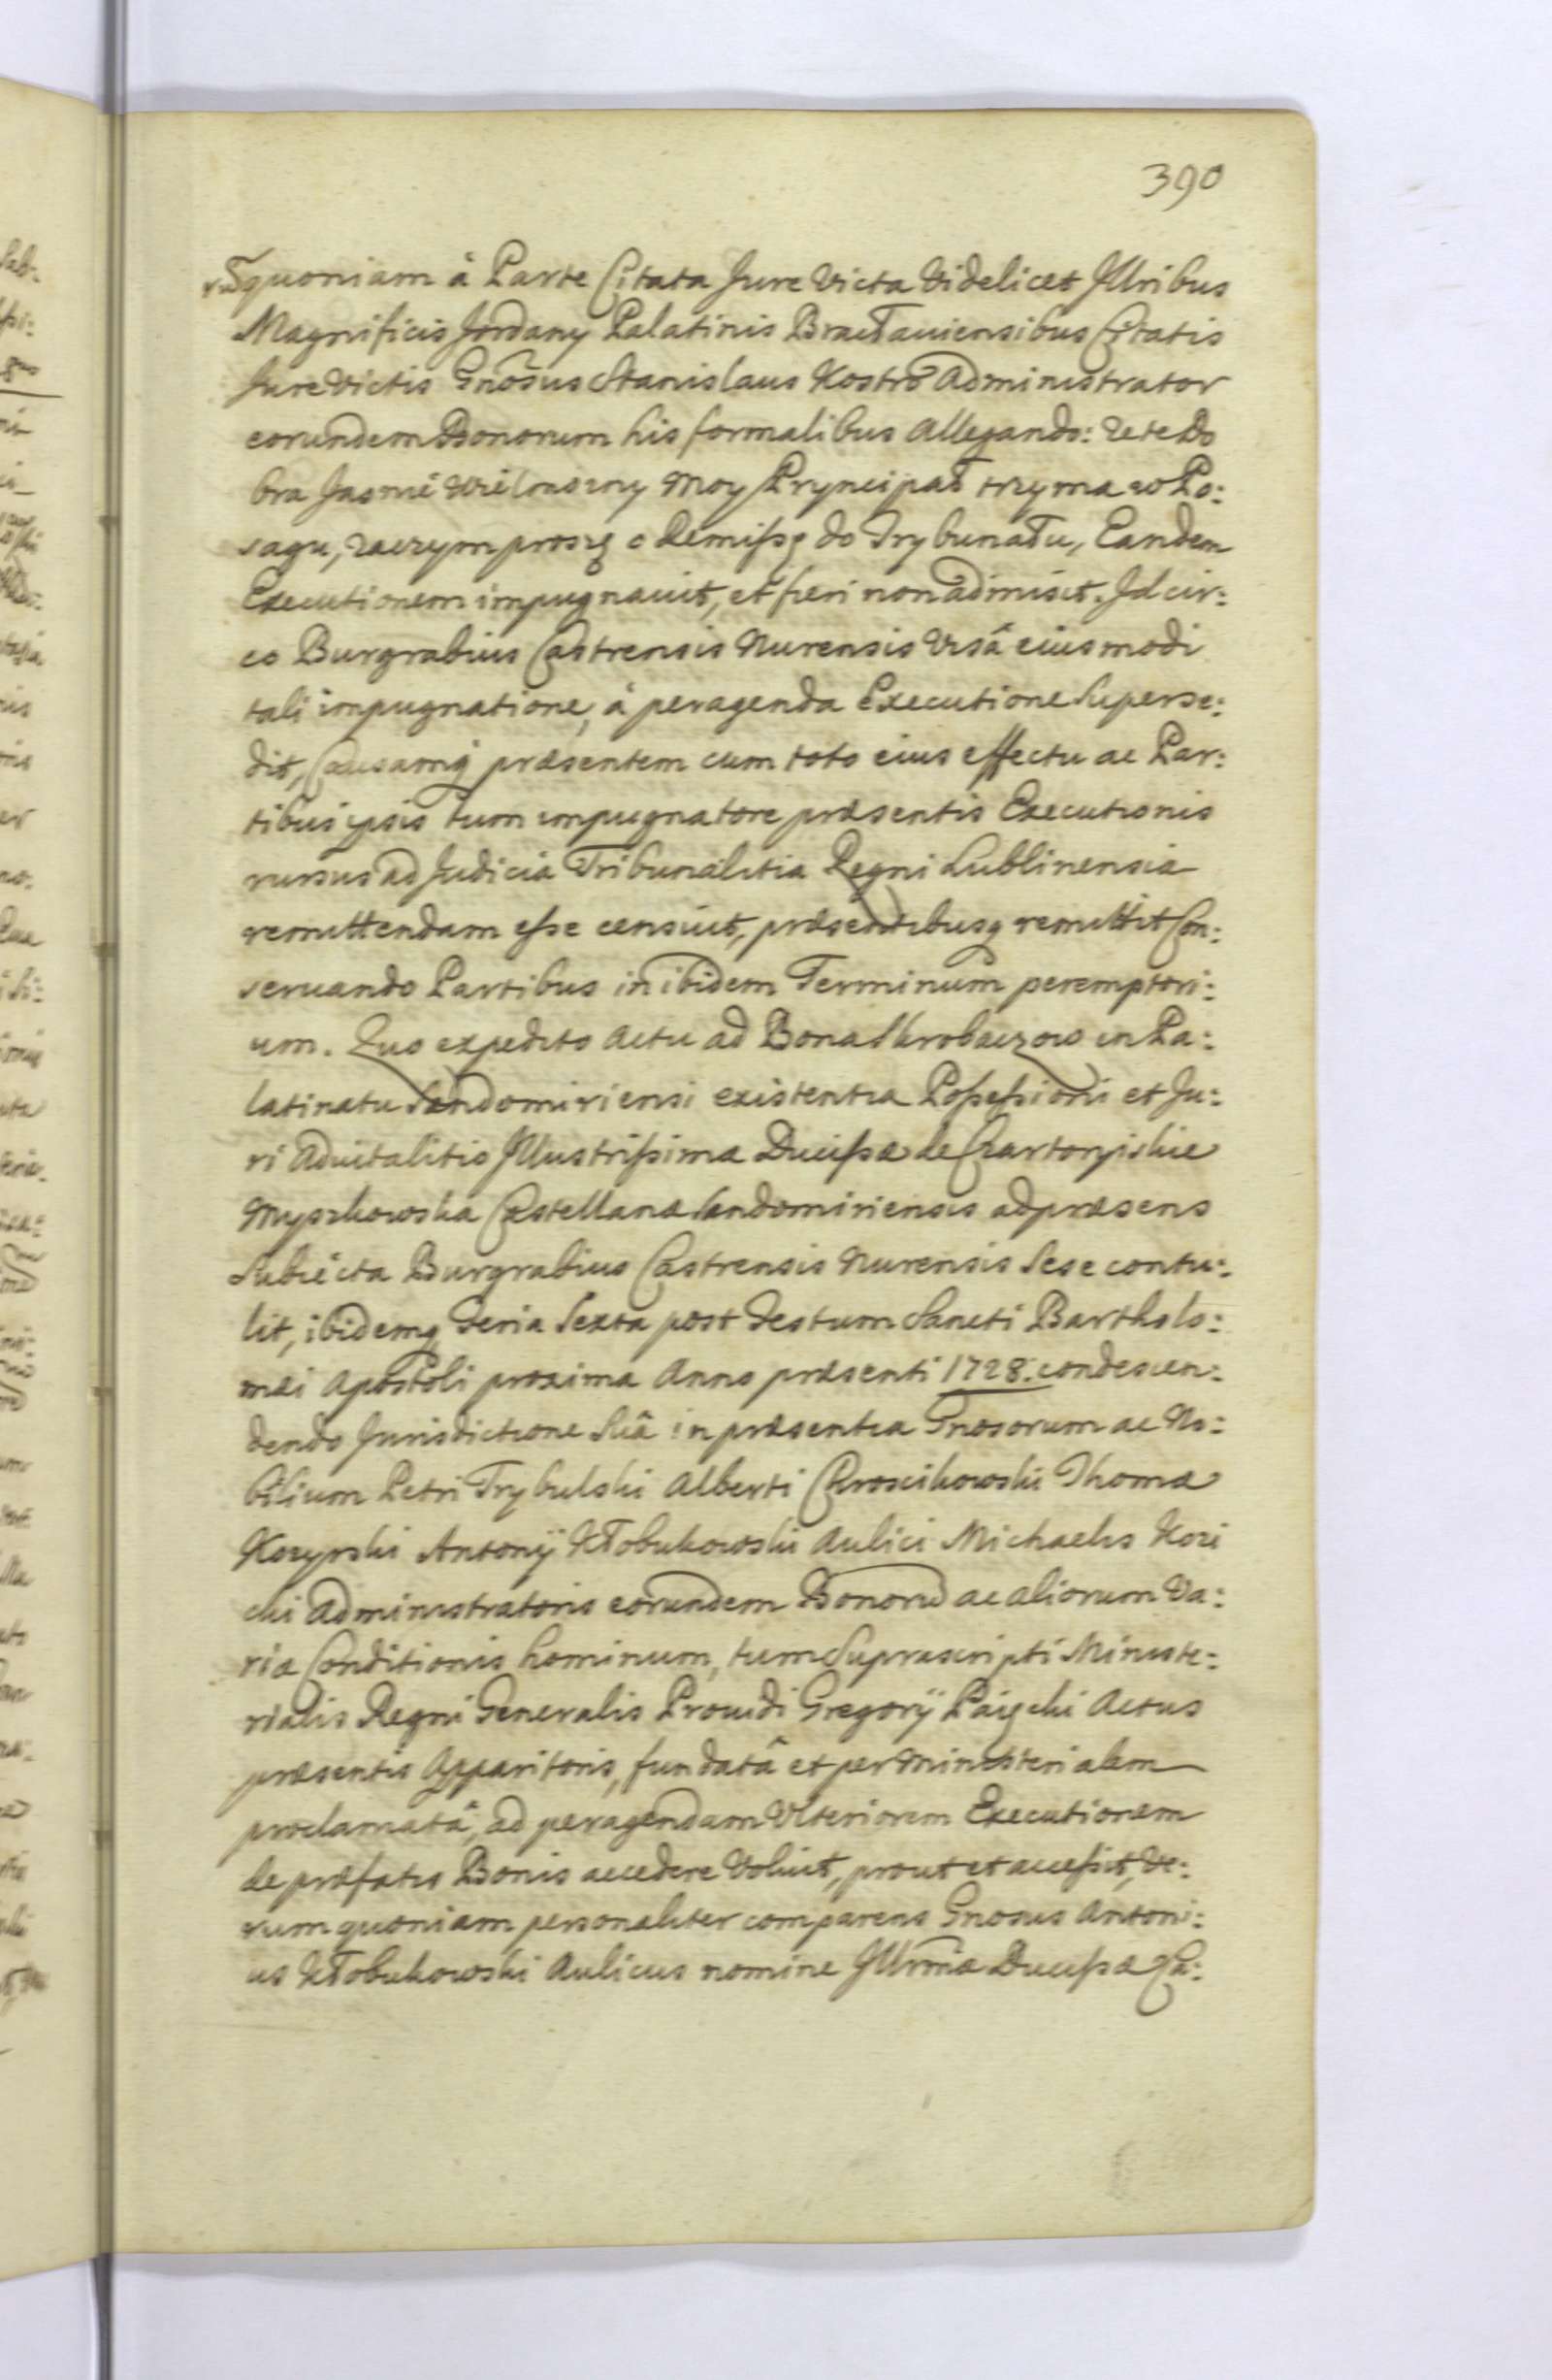 390
quoniam à Parte Citata Jure Victa Videlicet Jllribus
Magnificis Jordany Palatinis Bracłauiensibus Citatis
Jure Victis Gnosus Stanislaus Kostro Administrator
eorundem Bonorum his formalibus Allegando: Ze te Do
bra Jasnie Wielmozny Moy Pryncipał trzyma w Po:
sagu, zaczym proszę o Remissę do Trybunału, Eandem
Executionem impugnauit, et fieri non admisit. Jdcir:
co Burgrabius Castrensis Nurensis Visâ eiusmodi
tali impugnatione, à peragenda Executione Superse:
dit, Causamq præsentem cum toto eius effectu ac Par:
tibus ipsis tum impugnatore præsentis Executionis
rursus ad Judicia Tribunalitia Regni Lublinensia
remittendam esse censuit, præsentibusq remittit Con:
seruando Partibus in ibidem Terminum peremptori:
um. Quo expedito Actu ad Bona Skrobaczow in Pa:
latinatu Sandomiriensi existentia Possessioni et Ju:
ri Aduitalitio Jllustrissimæ Ducissæ de Czartoryskie
Myszkowska Castellanæ Sandomiriensis ad præsens
Subiecta Burgrabius Castrensis Nurensis Sese contu:
lit, ibidemq Feria Sexta post Festum Sancti Bartholo:
mæi Apostoli proxima Anno præsenti 1728. condescen:
dendo Jurisdictione Suâ in præsentia Gnosorum ac No:
bilium Petri Trybulski Alberti Chroscikowski Thomæ
Kozyrski Antonÿ Kłobukowski Aulici Michaelis Kozi
cki Administratoris eorundem Bonorū ac aliorum Va:
riæ Conditionis hominum, tum Suprascripti Ministe:
rialis Regni Generalis Prouidi Gregorÿ Paięcki Actus
præsentis Apparitoris, fundatâ et per Ministerialem
proclamatâ, ad peragendam Vlteriorem Executionem
de præfatis Bonis accedere Voluit, prout et accessit, Ve:
rum quoniam personaliter comparens Gnosus Antoni:
us Kłobukowski Aulicus nomine Jllrmæ Ducissæ Ca: